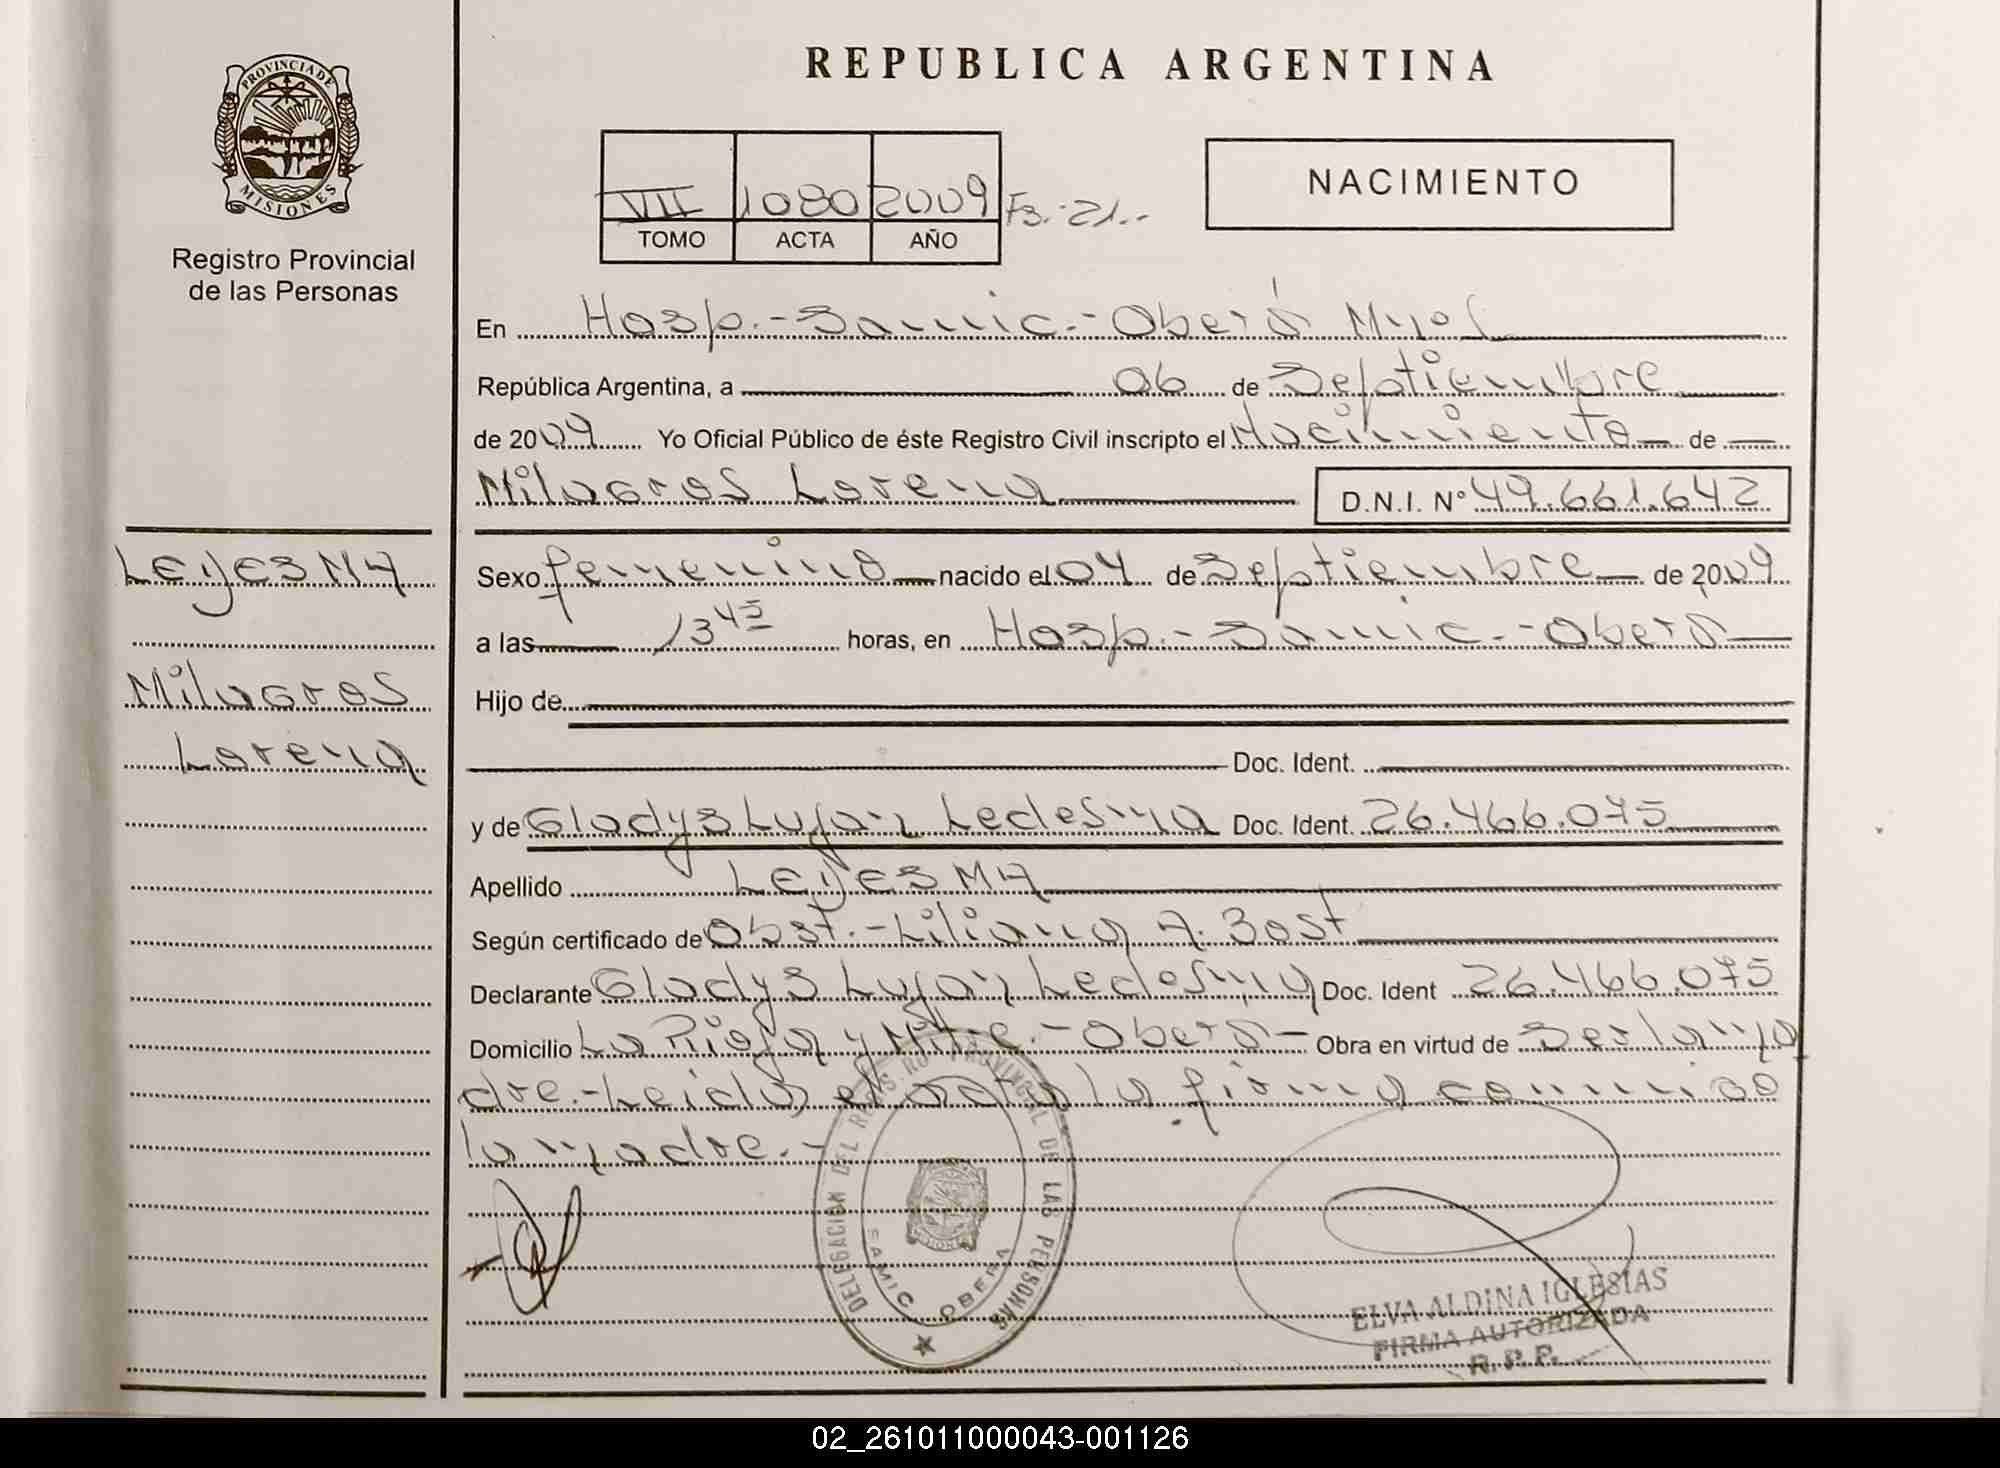 PROVINCIA DE
MISIONES
Registro Provincial
de las Personas
REPUBLICA ARGENTINA
VII 1080 2009 F3.-21.-
TOMO ACTA AÑO
NACIMIENTO
En Hosp.-Samic.-Oberá Mnes
República Argentina, a 06 de Septiembre
de 2009 Yo Oficial Público de éste Registro Civil inscripto el Nacimiento de
Milagros Lorena D.N.I. N° 49.661.642
Sexo femenino nacido el 04 de Septiembre de 2009
a las 13 45 horas, en Hosp.-Samic.-Oberá
Hijo de
Doc. Ident.
y de Gladys Lujan Ledesma Doc. Ident. 26.466.075
Apellido LEDESMA
Según certificado de Obst.-Liliana A. Bost
Declarante Gladys Lujan Ledesma Doc. Ident 26.466.075
Domicilio La Rioja y Mitre.-Oberá- Obra en virtud de Ser la ma
dre.-Leida el acta la firma conmigo
la madre.-
LEDESMA
Milagros
Lorena
DELEGACION DEL REGIS. PROVINCIAL DE LAS PERSONAS
SAMIC OBERA
MISIONES
ELVA ALDINA IGLESIAS
FIRMA AUTORIZADA
R.P.P.
02_261011000043-001126